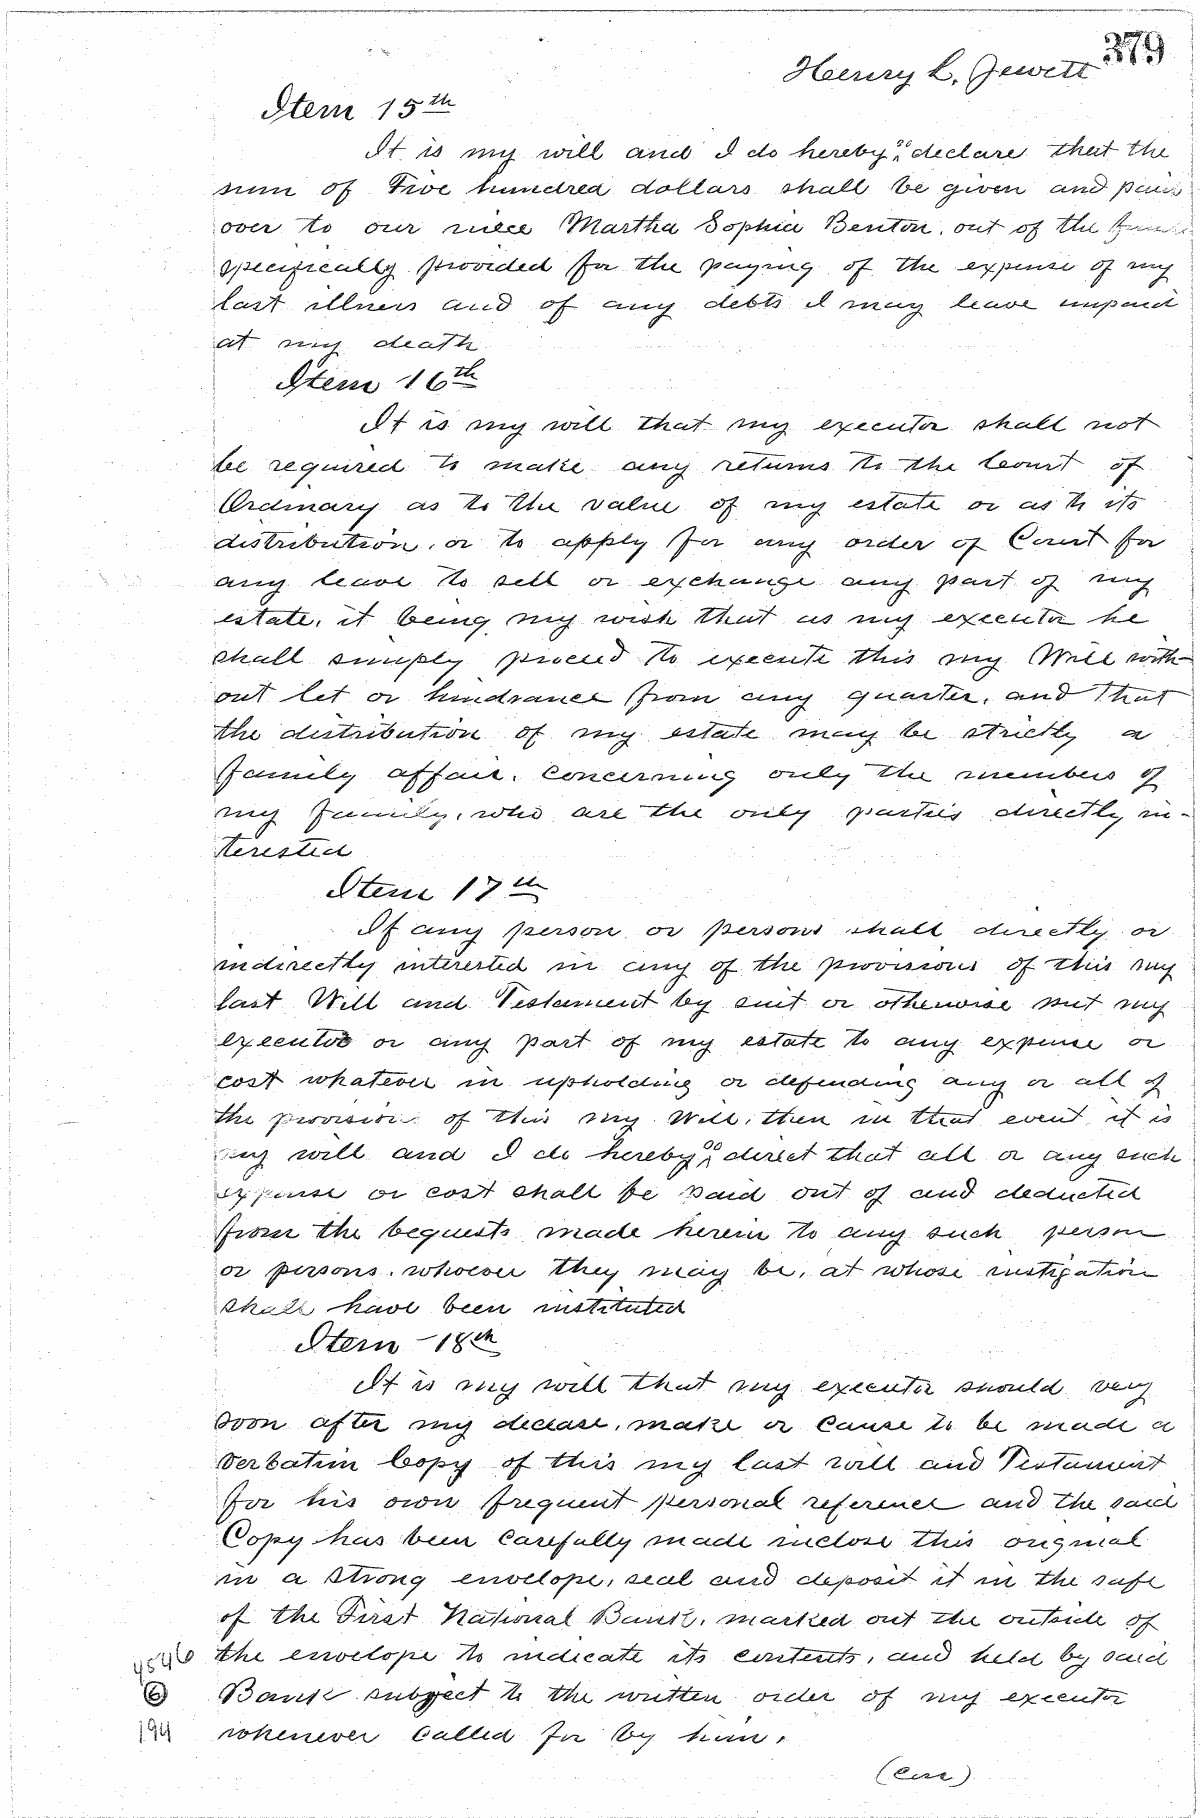 379
Henry L. Jewett
Item 15th
It is my will and I do hereby "^" declare that the
sum of Five hundred dollars shall be given and paid
over to our niece Martha Sophia Benton, out of the
specifically provided for the paying of the expense of my
last illness and of any debts I may leave unpaid
at my death
Item 16th
It is my will that my executor shall not
be required to make any returns to the Court of
Ordinary as to the value of my estate or as to its
distribution, or to apply for any order of Court for
any leave to sell or exchange any part of my
estate, it being my wish that as my executor he
shall simply proceed to execute this my Will with-
out let or hindrance from any quarter, and that
the distribution of my estate may be strictly a
family affair, concerning only the members of
my family, who are the only parties directly in-
terested
Item 17th
If any person or persons shall directly or
indirectly interested in any of the provisions of this my
last Will and Testament by suit or otherwise put my
executor or any part of my estate to any expense or
cost whatever in upholding or defending any or all of
the provision of this my Will, then in that event it is
my will and I do hereby "^" direct that all or any such
expense or cost shall be paid out of and deducted
from the bequests made herein to any such person
or persons, whoever they may be, at whose instigation
shall have been instituted
Item - 18th
It is my will that my executor should very
soon after my decease, make or cause to be made a
verbatim Copy of this my last will and Testament
for his own frequent personal reference and the said
Copy has been carefully made inclose this original
in a strong envelope, seal and deposit it in the safe
of the First National Bank, marked out the outside of
the envelope to indicate its contents, and held by said
Bank subject to the written order of my executor
whenever called for by him.
4546
6
194
(Con)